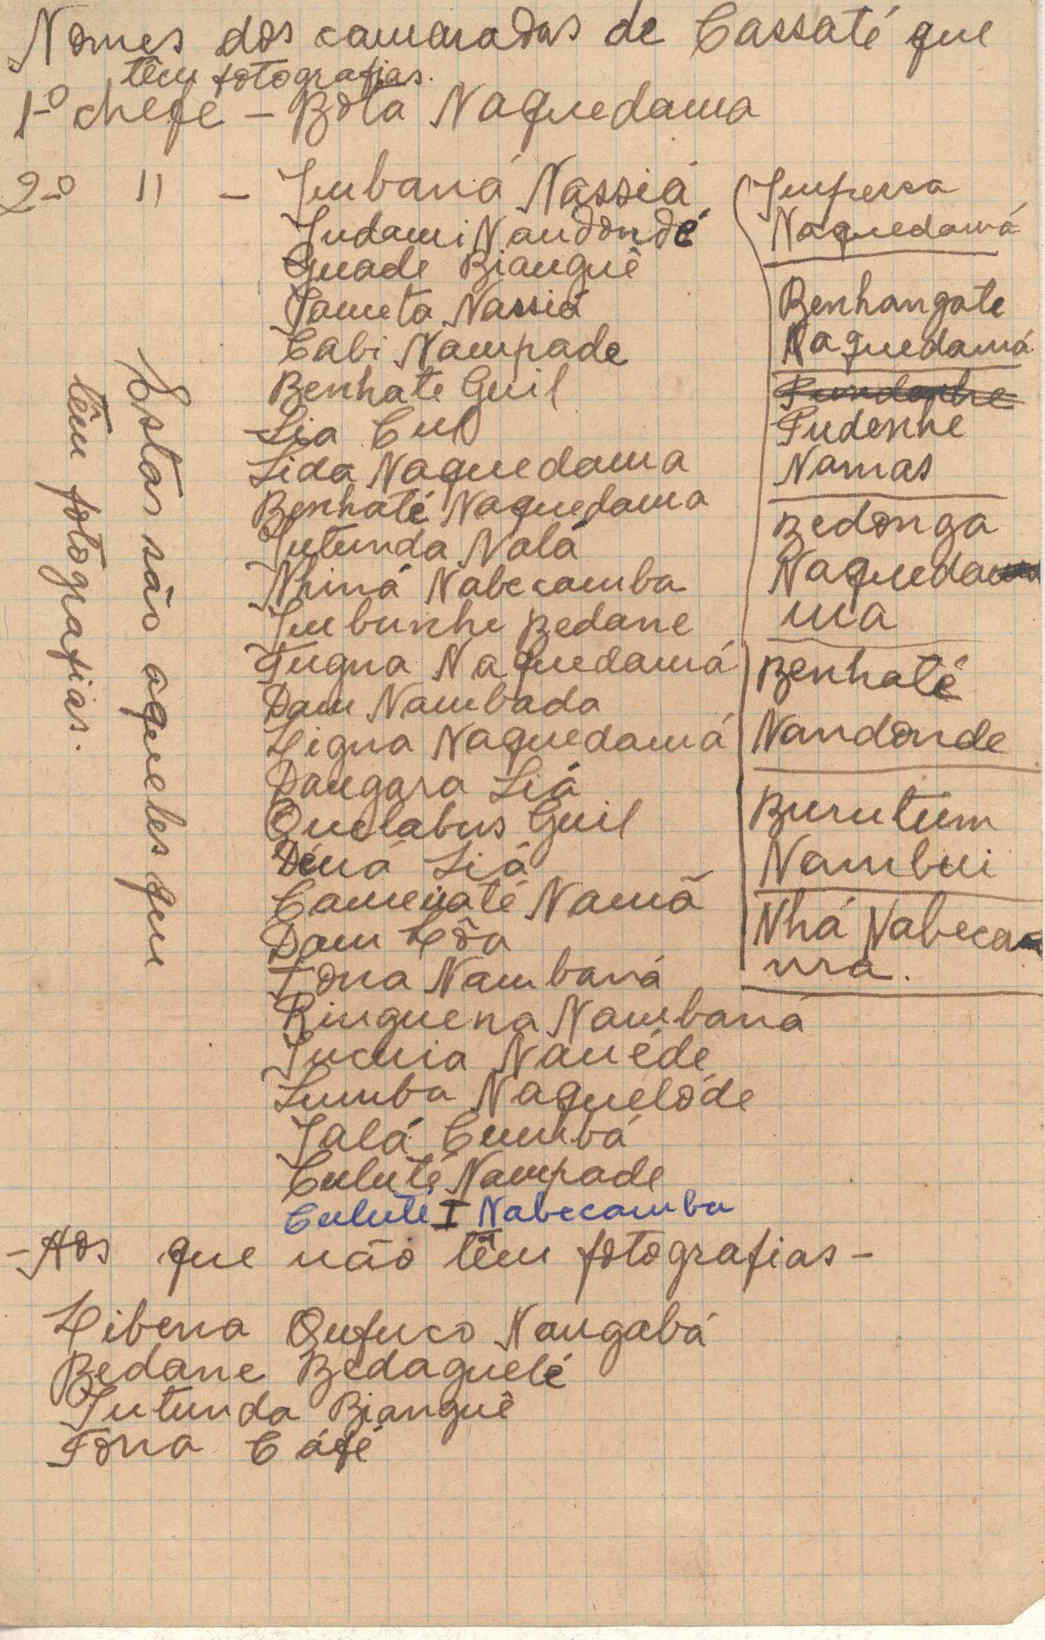 Nomes dos camaradas de Cassaté que
têm fotografias.
1º chefe - Bôta Naquedama
2º " - Imbaná Nassiá
Indami Nandondé
Quade Bianguê
Iameta Nassiá
Cabi Nampade
Benhate Guil
Lia Cul
Lida Naquedama
Benhaté Naquedama
Iutunda Nalá
Nhiná Nabecamba
Imbunhe Bedane
Tugna Naquedamá
Dam Nambada
Ligna Naquedamá
Dangara Liá
Quelabus Guil
Déná Liá
Camenaté Namã
Dam Lôa
Fona Nambaná
Ringuena Nambana
Iucuia Nanéde
Lumba Naquelóde
Ialá Cumbá
Culuté Nampade
Culuté I Nabecamba
Impessa
Naquedamá
Benhangate
Naquedamá
Pudenhe
Namas
Bedonga
Naqueda
ma
Benhaté
Nandonde
Burutum
Nambui
Nhá Nabeca
mra.
Estas são aqueles que
têm fotografias.
- Aos que não têm fotografias -
Libena Qufuco Nangabá
Bedane Bedaguelé
Iutunda Bianguê
Fona Cáfé